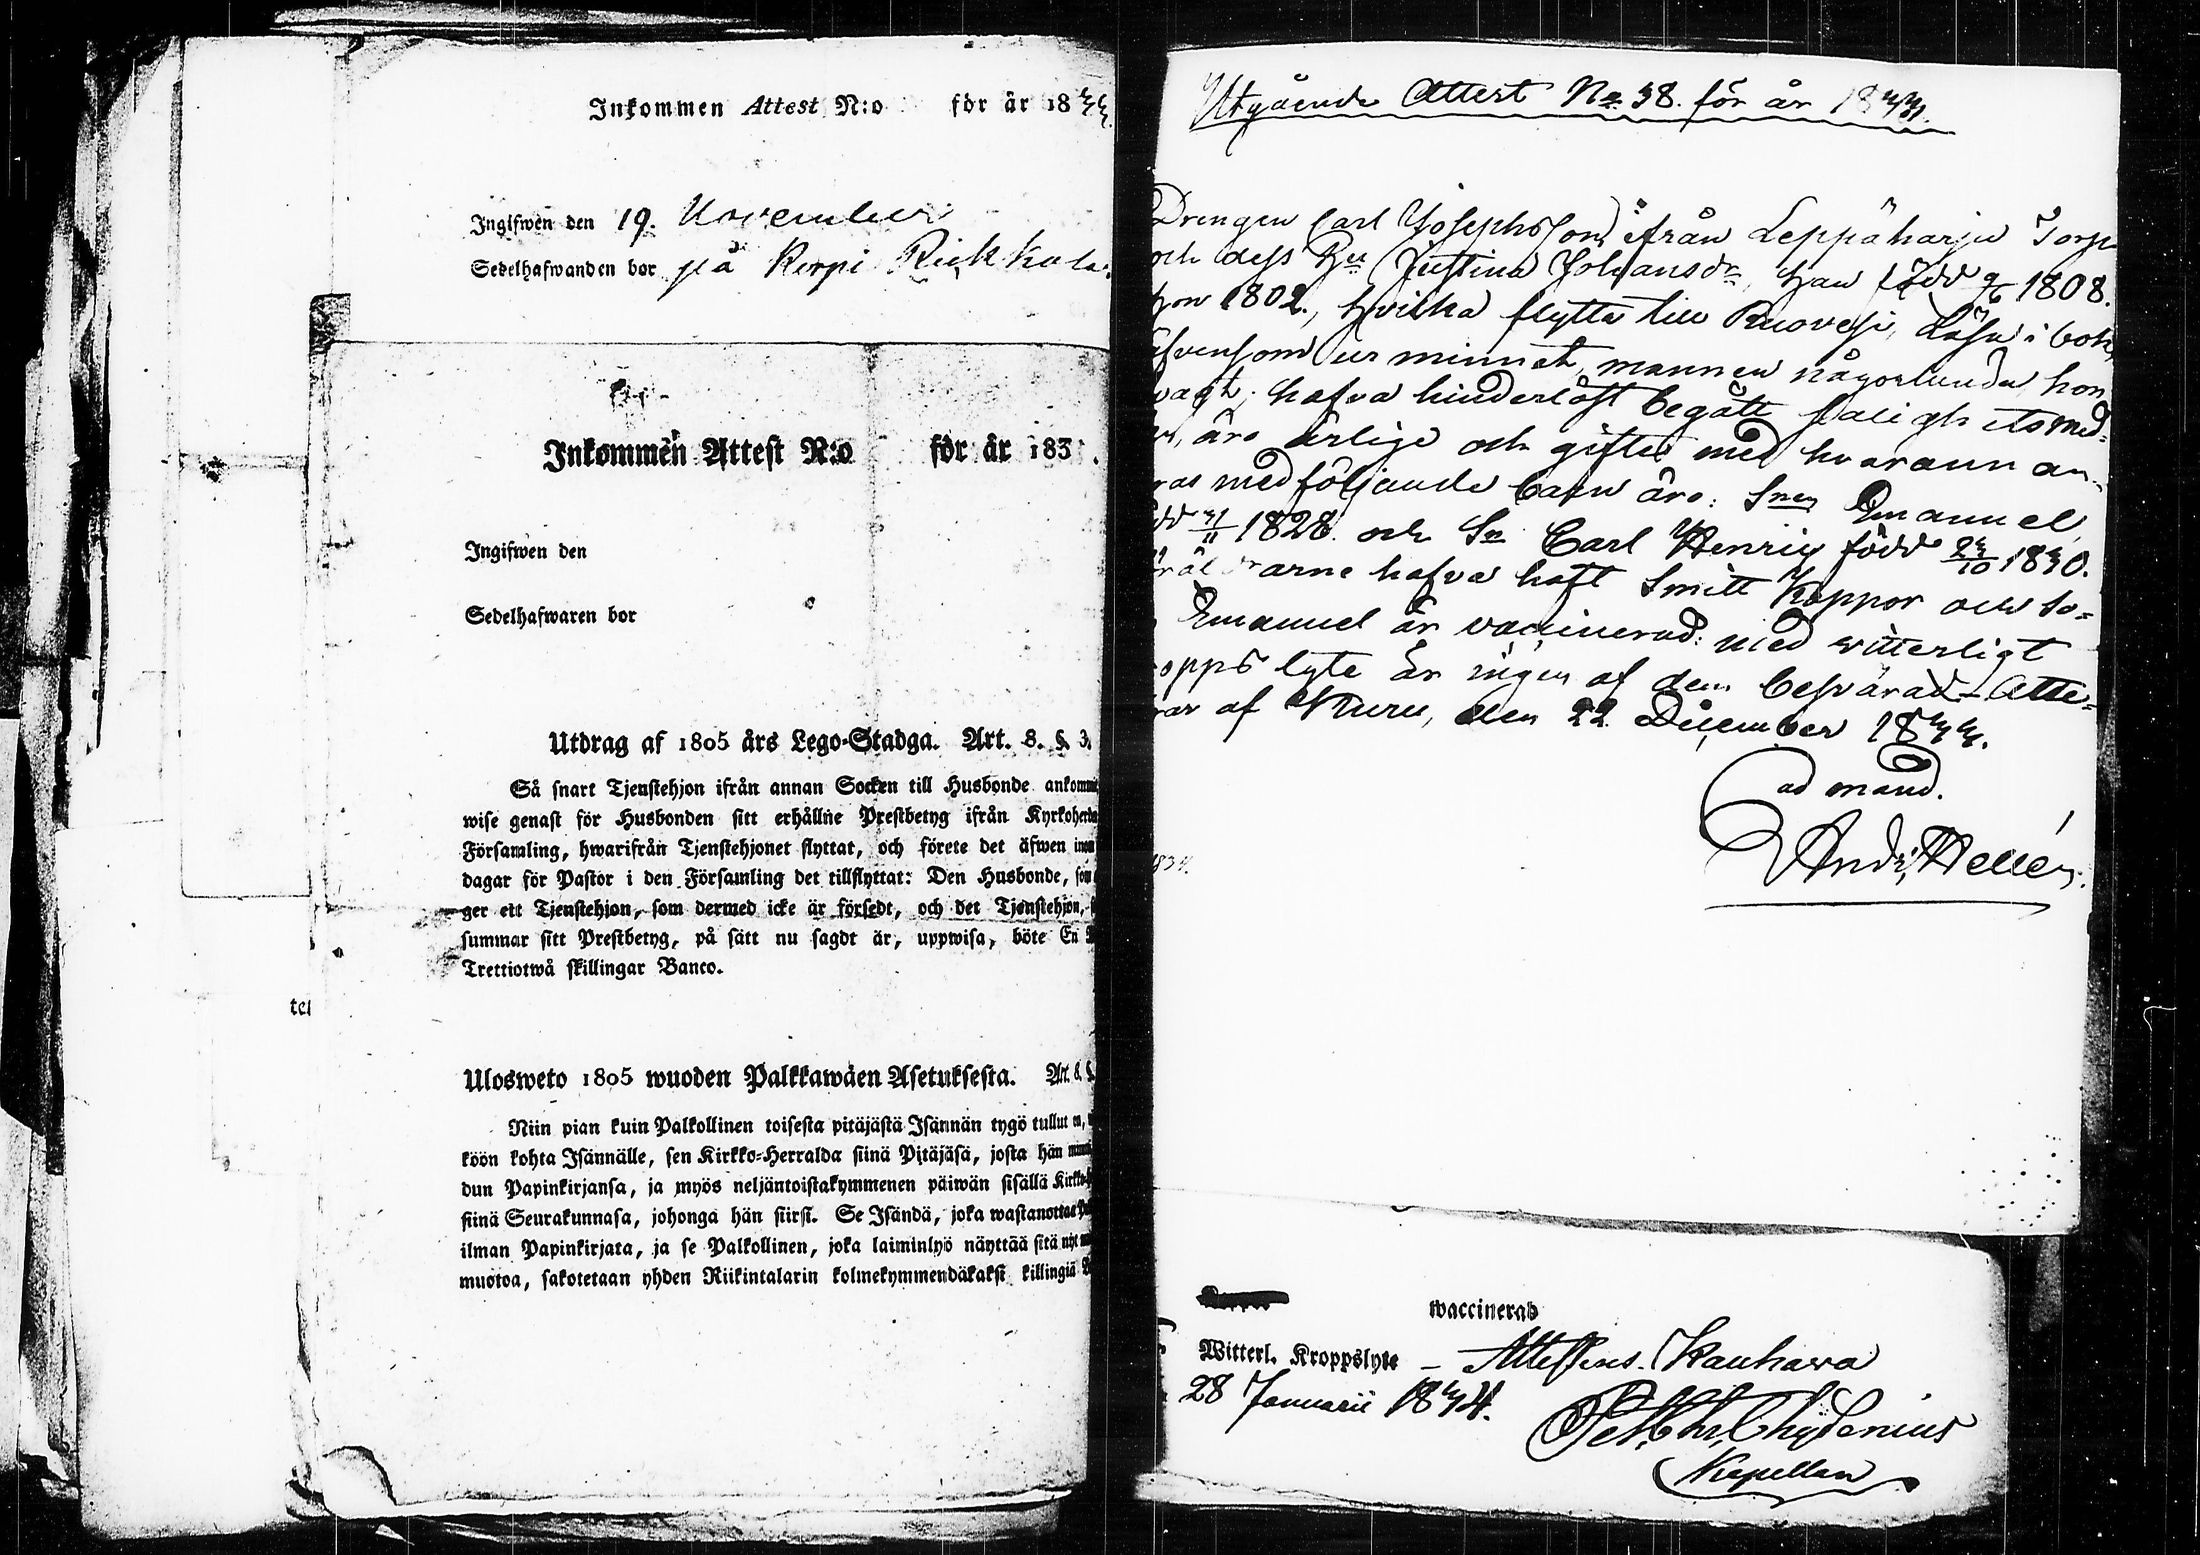 Inkommen Attest N:o för år 1833.
Ingifwen den 19. November
Sedelhafwanden bor på Korpi
Inkommen Attest N:o för år 183 .
Ingifwen den
Sedelhafwaren bor
Utdrag af 1805 års Lego-Stadga. Art. 8. §. 3.
Så snart Tjenstehjon ifrån annan Socken till Husbonde ankommit
wise genast för Husbonden sitt erhållne Prestbetyg ifrån Kyrkoherde
Församling, hwarifrån Tjenstehjonet flyttat, och förete det äfwen inom
dagar för Pastor i den Församling det tillflyttat: Den Husbonde, som
ger ett Tjenstehjon, som dermed icke är försedt, och det Tjenstehjon,
summar sitt Prestbetyg, på sätt nu sagdt är, uppwisa, böte En
Trettiotwå skillingar Banco.
tel
Ulosweto 1805 wuoden Palkkawäen Asetuksesta. Art. 8. §.
Niin pian kuin Palkollinen toisesta pitäjästä Isännän tygö tullut on,
köön kohta Isännälle, sen Kirkko-Herralda siinä Pitäjäsä, josta hän
dun Papinkirjansa, ja myös neljäntoistakymmenen päiwän sisällä Kirkko-
siinä Seurakunnasa, johonga hän siirsi. Se Isändä, joka wastanottaa
ilman Papinkirjata, ja se Palkollinen, joka laiminlyö näyttää sitä nyt
muotoa, sakotetaan yhden Riikintalarin kolmekymmendäkaksi killingiä
Utgående Attest No 38. för år 1833.
Drengen Carl Josephsson ifrån Leppäharju Torp
och dess Hu Justina Johansdr, han född 9/6 1808.
hon 1802., hvilka flytta till Ruovesi, Läsa i bok,
äfvensom ur minnet, mannen någorlunda, hon
svagt; hafva hinderlöst begått salighetsmed=
len, äro ärlige och gifte med hvarann an-
ras medföljande barn äro: Sonen Emanuel
född 31/11 1828. och Sn Carl Henric född 23/10 1830.
Föräldrarne hafva haft Smitt Koppor och So=
n Emanuel är vaccinerad: med witterligt
kropps lyte är ingen af dem besvärad – Atte=
rar af Kuru, den 22 December 1833.
ad mand.
And. Hellén.
1834.
waccinerad
Witterl. Kroppslyte – Attesteras. Kauhava
28 Januarii 1834.
Chydenius
Kapellan